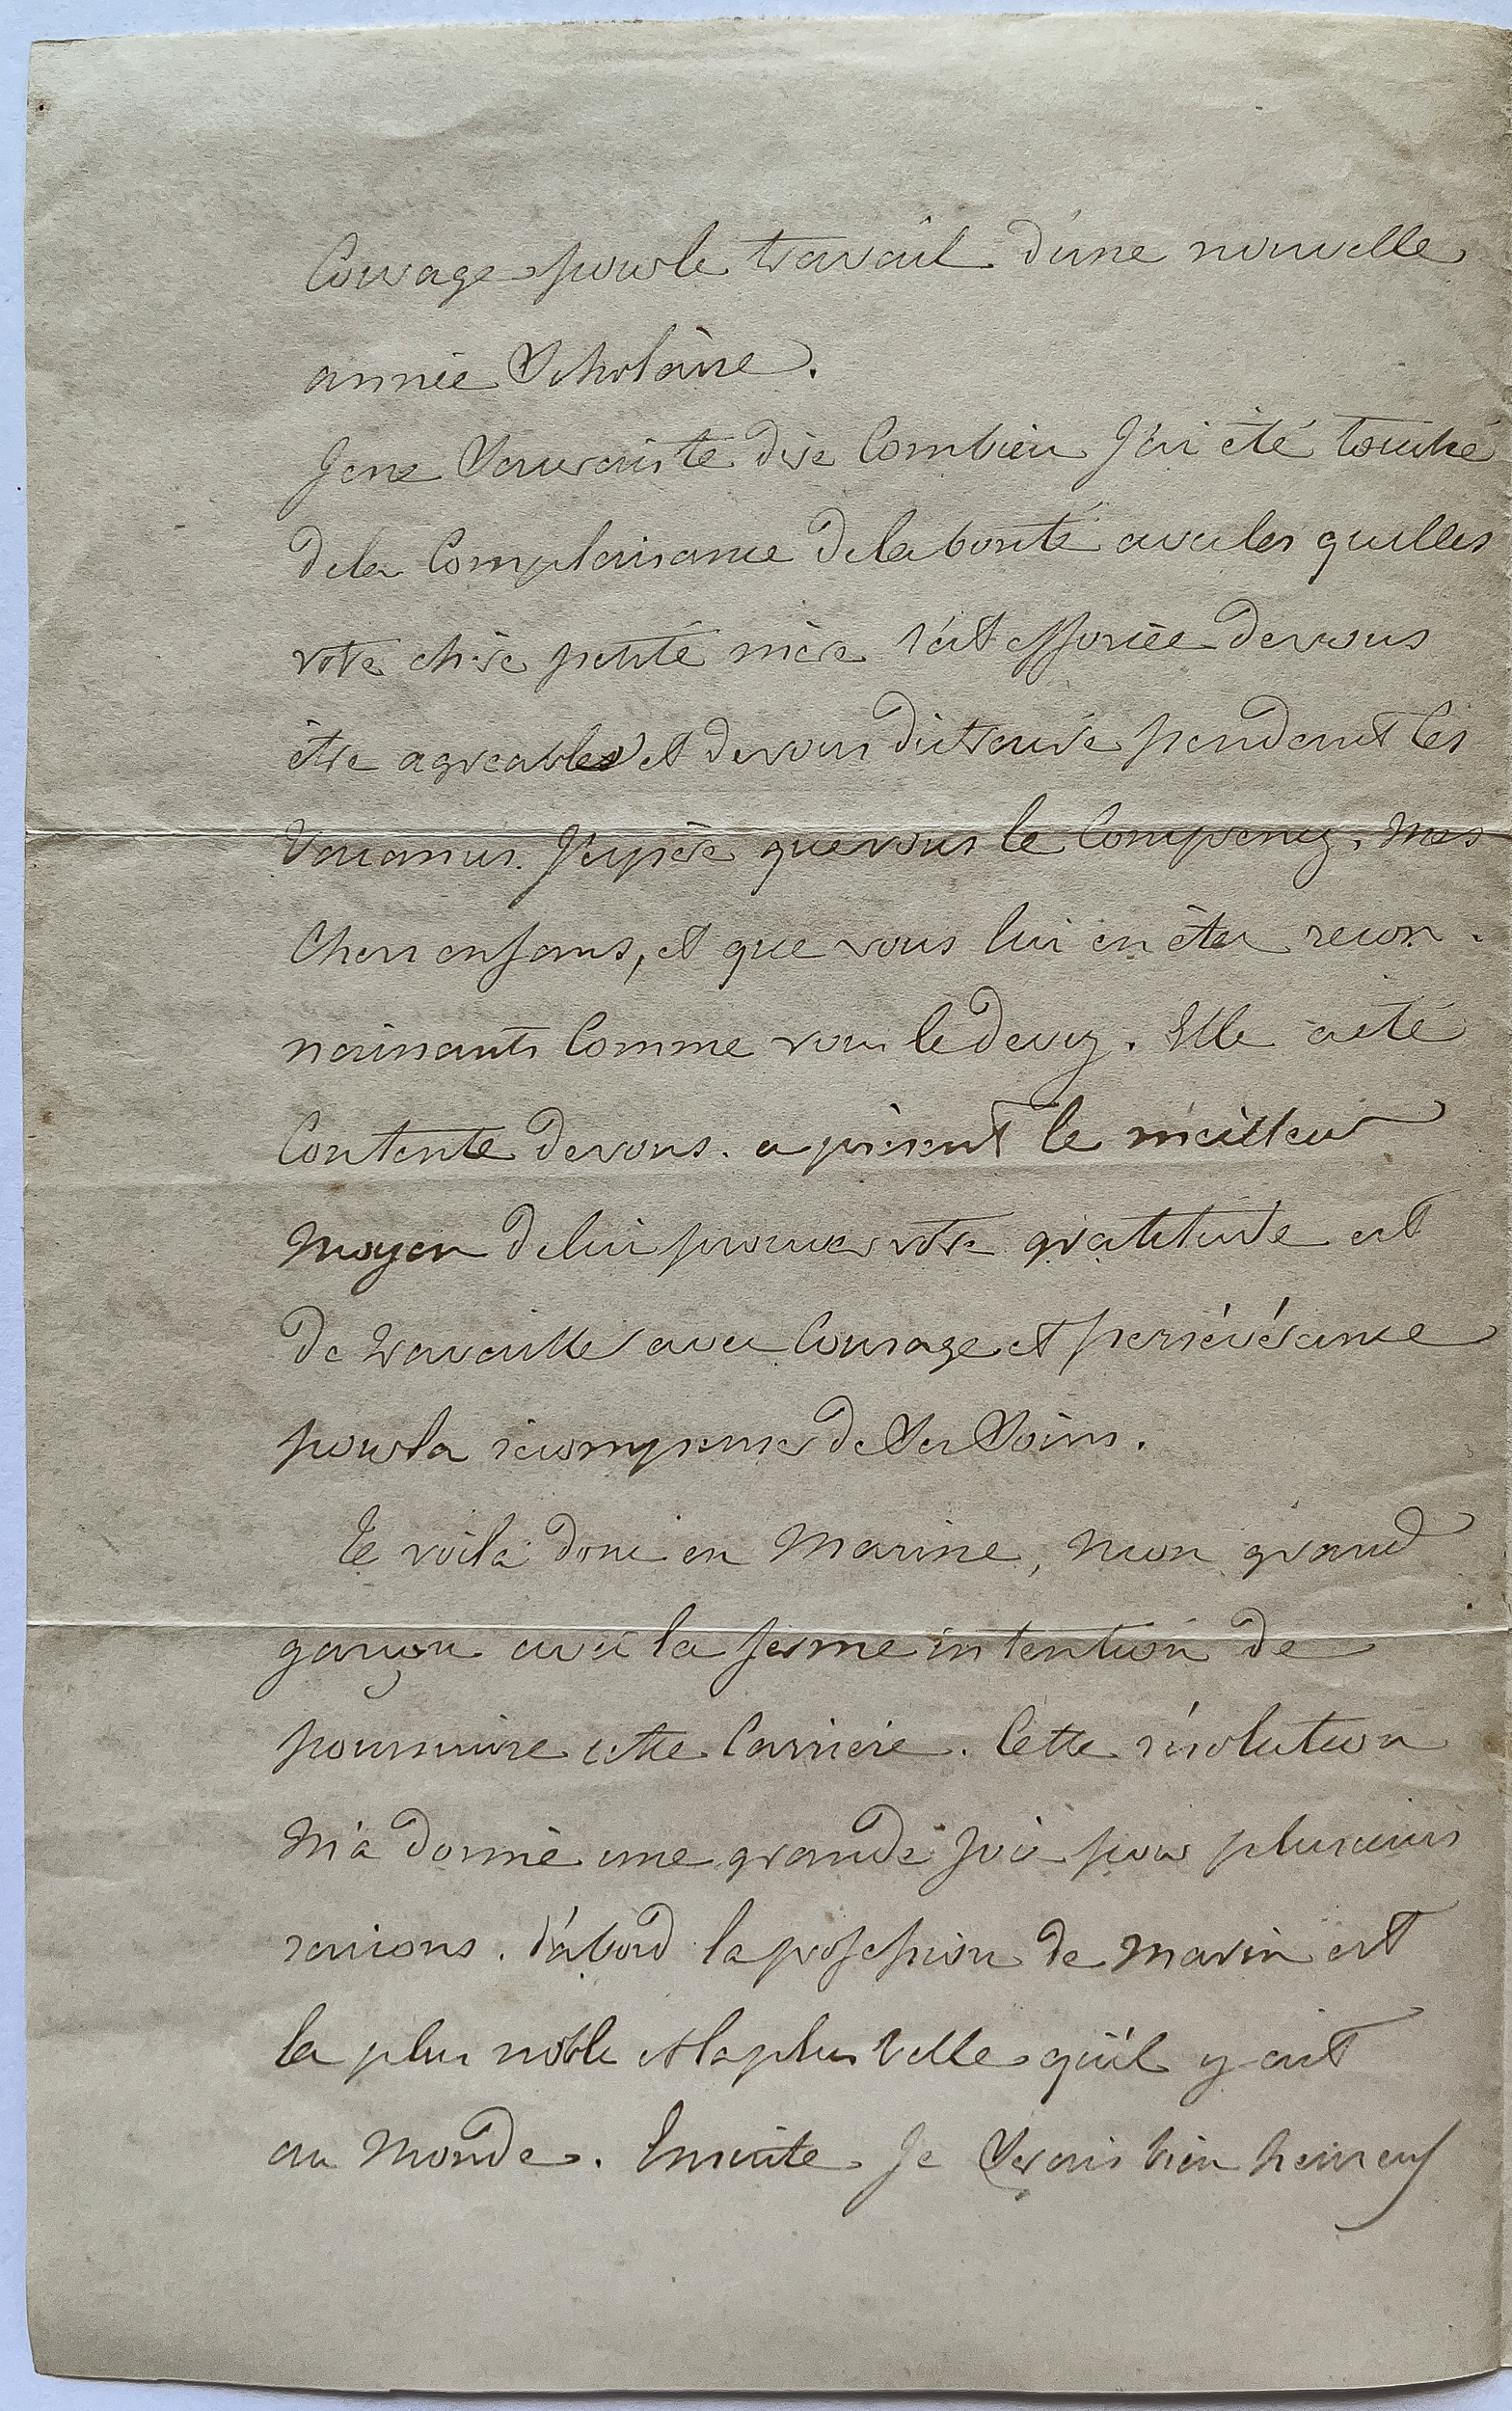 Courage pour le travail d'une nouvelle
année Scholaire.
Je ne Saurais te dire Combien J'ai été touché
de la Complaisance de la bonté avec les quelles
votre chère petite mère s'est efforcée de vous
être agréables et de vous distraire pendant les
Vacances. J'espère que vous le Comprenez, Mes
Chers enfans, et que vous lui en êtes recon-
naissants Comme vous le devez. Elle a été
Contente de vous. a présent le meilleur
Moyen de lui prouver votre gratitude est
de travailler avec Courage et persévérance
pour la récompenser de Ses Soins.
Te voilà donc en Marine, Mon grand
garçon avec la ferme intention de
poursuivre cette Carrière. Cette résolution
M'a donné une grande Joie pour plusieurs
raisons. d'abord la profession de marin est
la plus noble et la plus belle qu'il y ait
au Monde. Ensuite Je Serais bien heureux